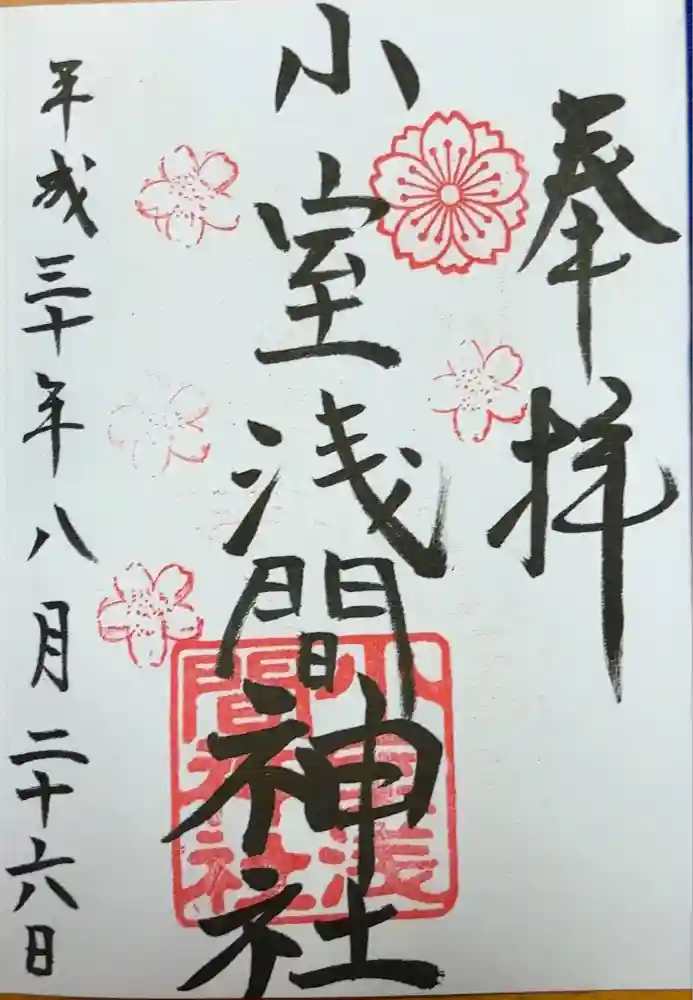 奉拝
小室浅間神社
小室浅
間神社
平成三十年八月二十六日